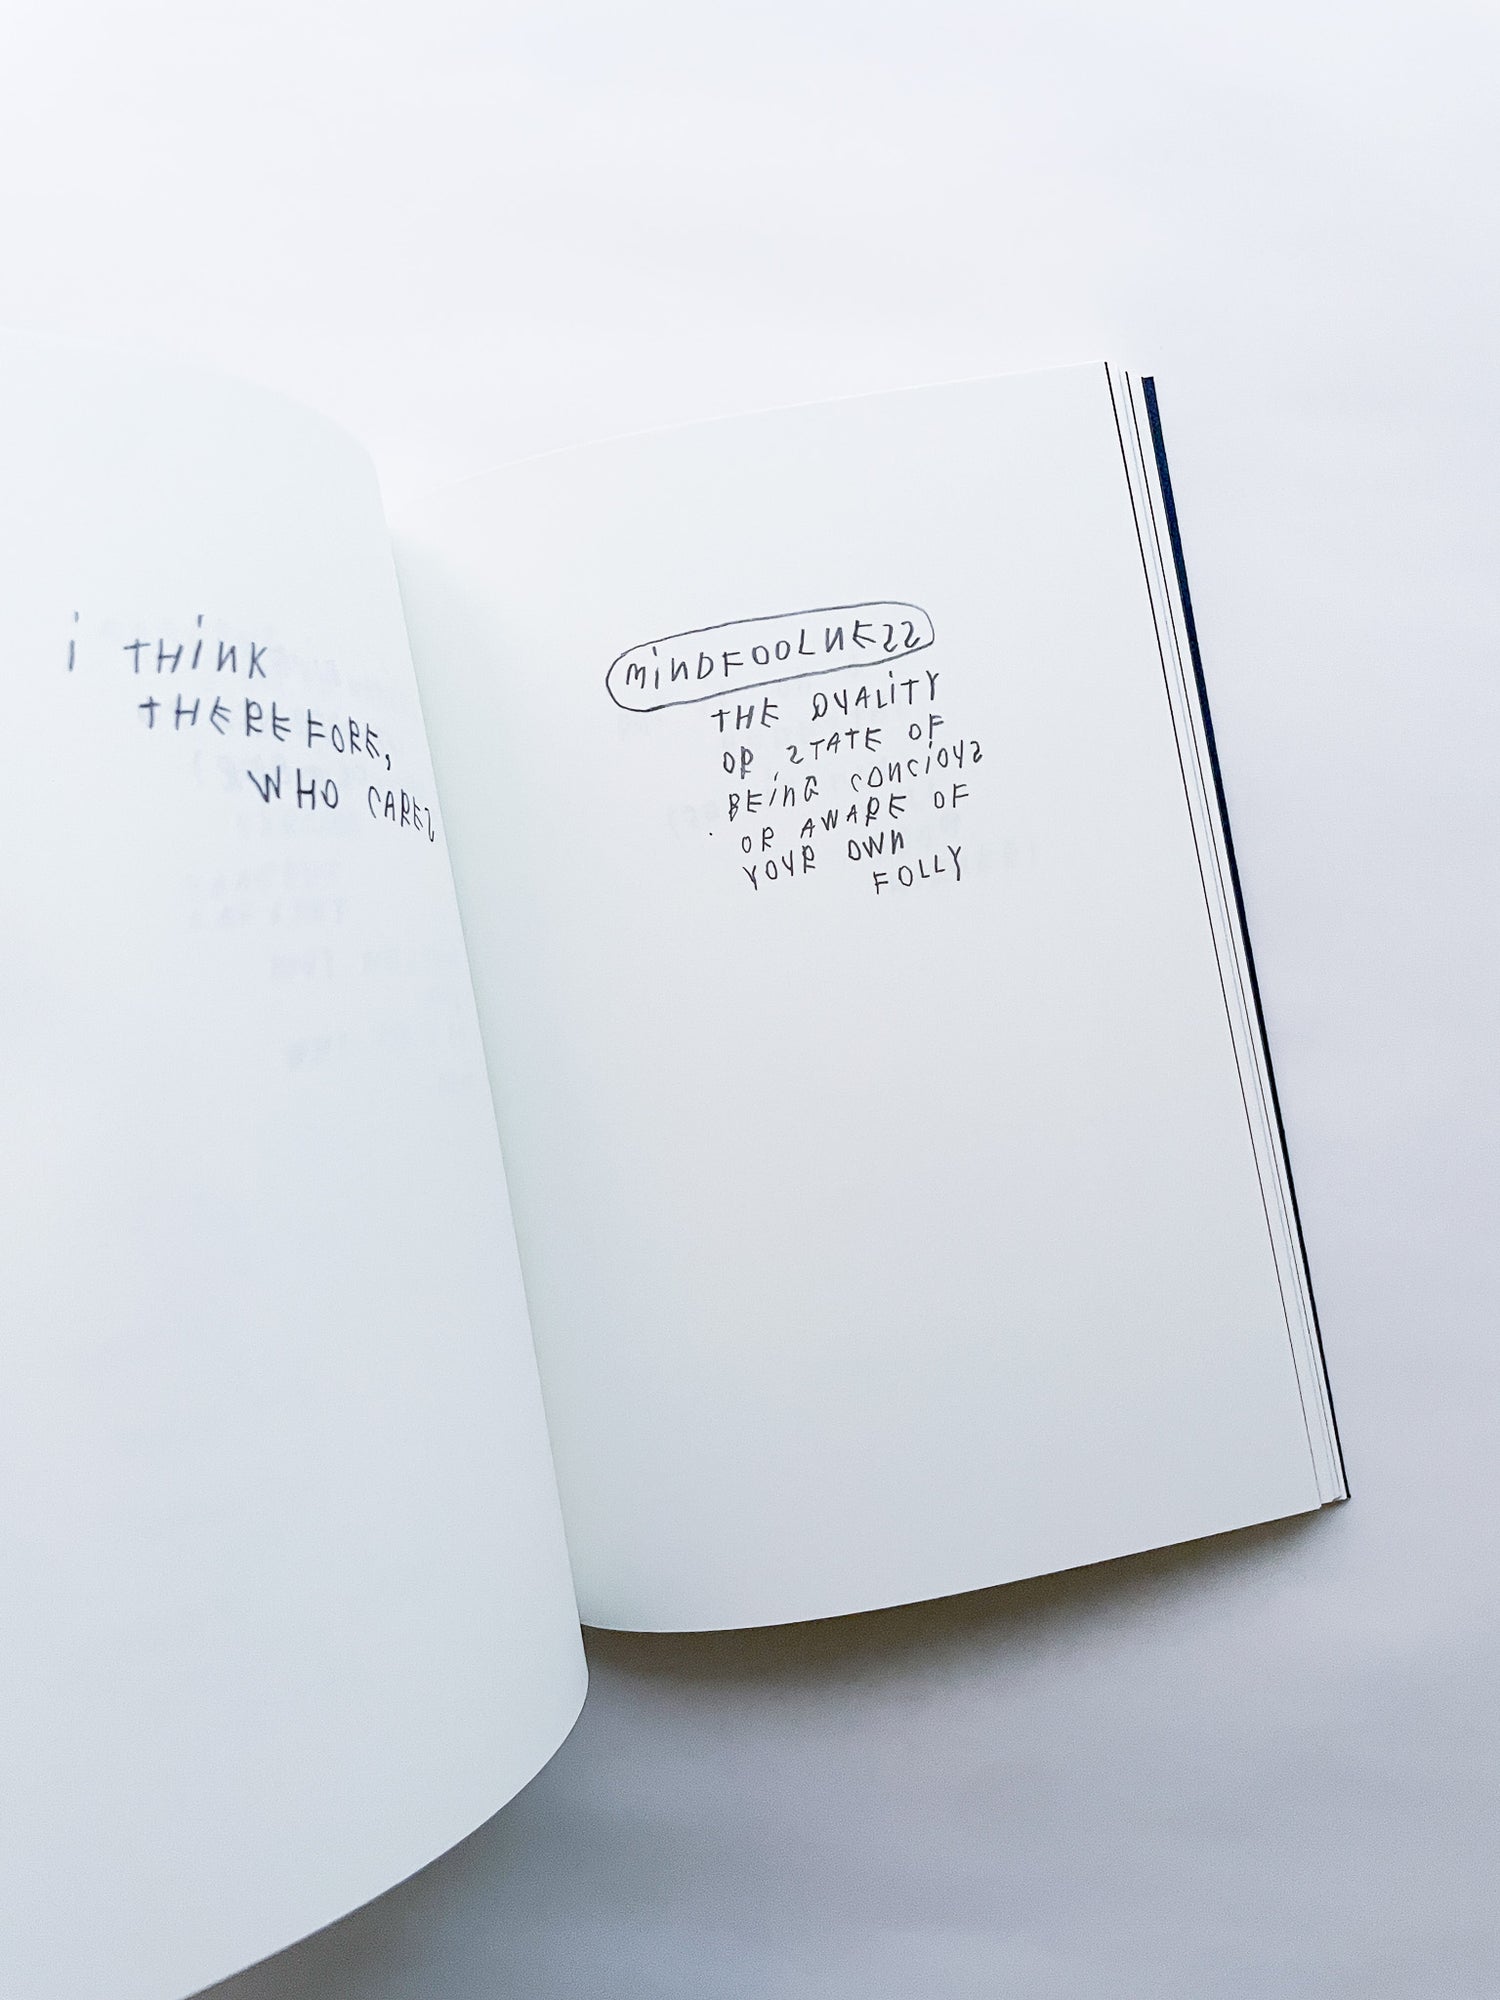 i THiNK
THEREFORE,
WHO CARES
MiNDFOOLNESS
THE QUALiTY
OR STATE OF
BEiNG CONCiOUS
OR AWARE OF
YOUR OWN
FOLLY